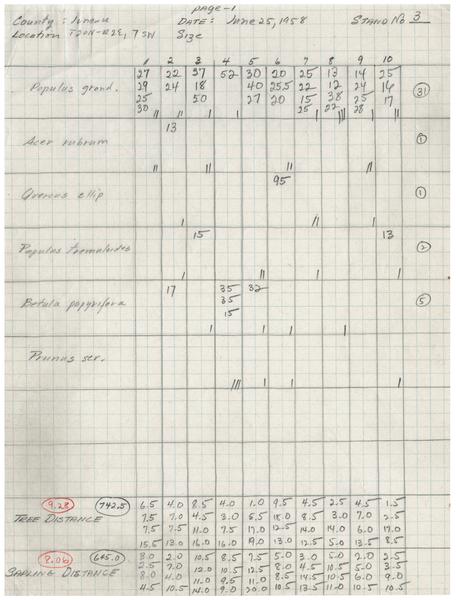 page-1
County: Juneau DATE: June 25, 1958 STAND No 3
Location T20N-R2E, 7 SW Size
1 2 3 4 5 6 7 8 9 10
Populus grand. 27 22 37 52 30 20 25 13 14 25 31
29 24 18 40 25.5 22 12 24 16
25 50 27 20 15 38 25 17
30 25 22 28
Acer rubrum 13 1
Quercus ellip 95 1
Populus tremuloides 15 13 2
Betula papyrifera 17 35 32 5
35
15
Prunus ser.
9.28 742.5 6.5 4.0 8.5 4.0 1.0 9.5 4.5 2.5 4.5 1.5
TREE DISTANCE 7.5 7.0 4.5 3.0 5.5 15.0 8.5 3.0 7.0 2.5
7.5 7.5 11.0 7.5 17.0 12.5 14.0 14.0 6.0 17.0
15.5 13.0 16.0 16.0 19.0 13.0 12.5 5.0 13.5 8.5
8.06 645.0 3.0 2.0 10.5 8.5 7.5 5.0 3.0 5.0 2.0 2.5
SAPLING DISTANCE 2.5 7.0 12.0 10.5 12.5 8.0 4.5 10.5 5.0 3.5
8.0 4.0 11.0 9.5 11.0 8.5 14.5 10.5 6.0 9.0
4.5 10.5 14.0 9.0 20.0 10.5 13.5 11.0 10.5 10.5